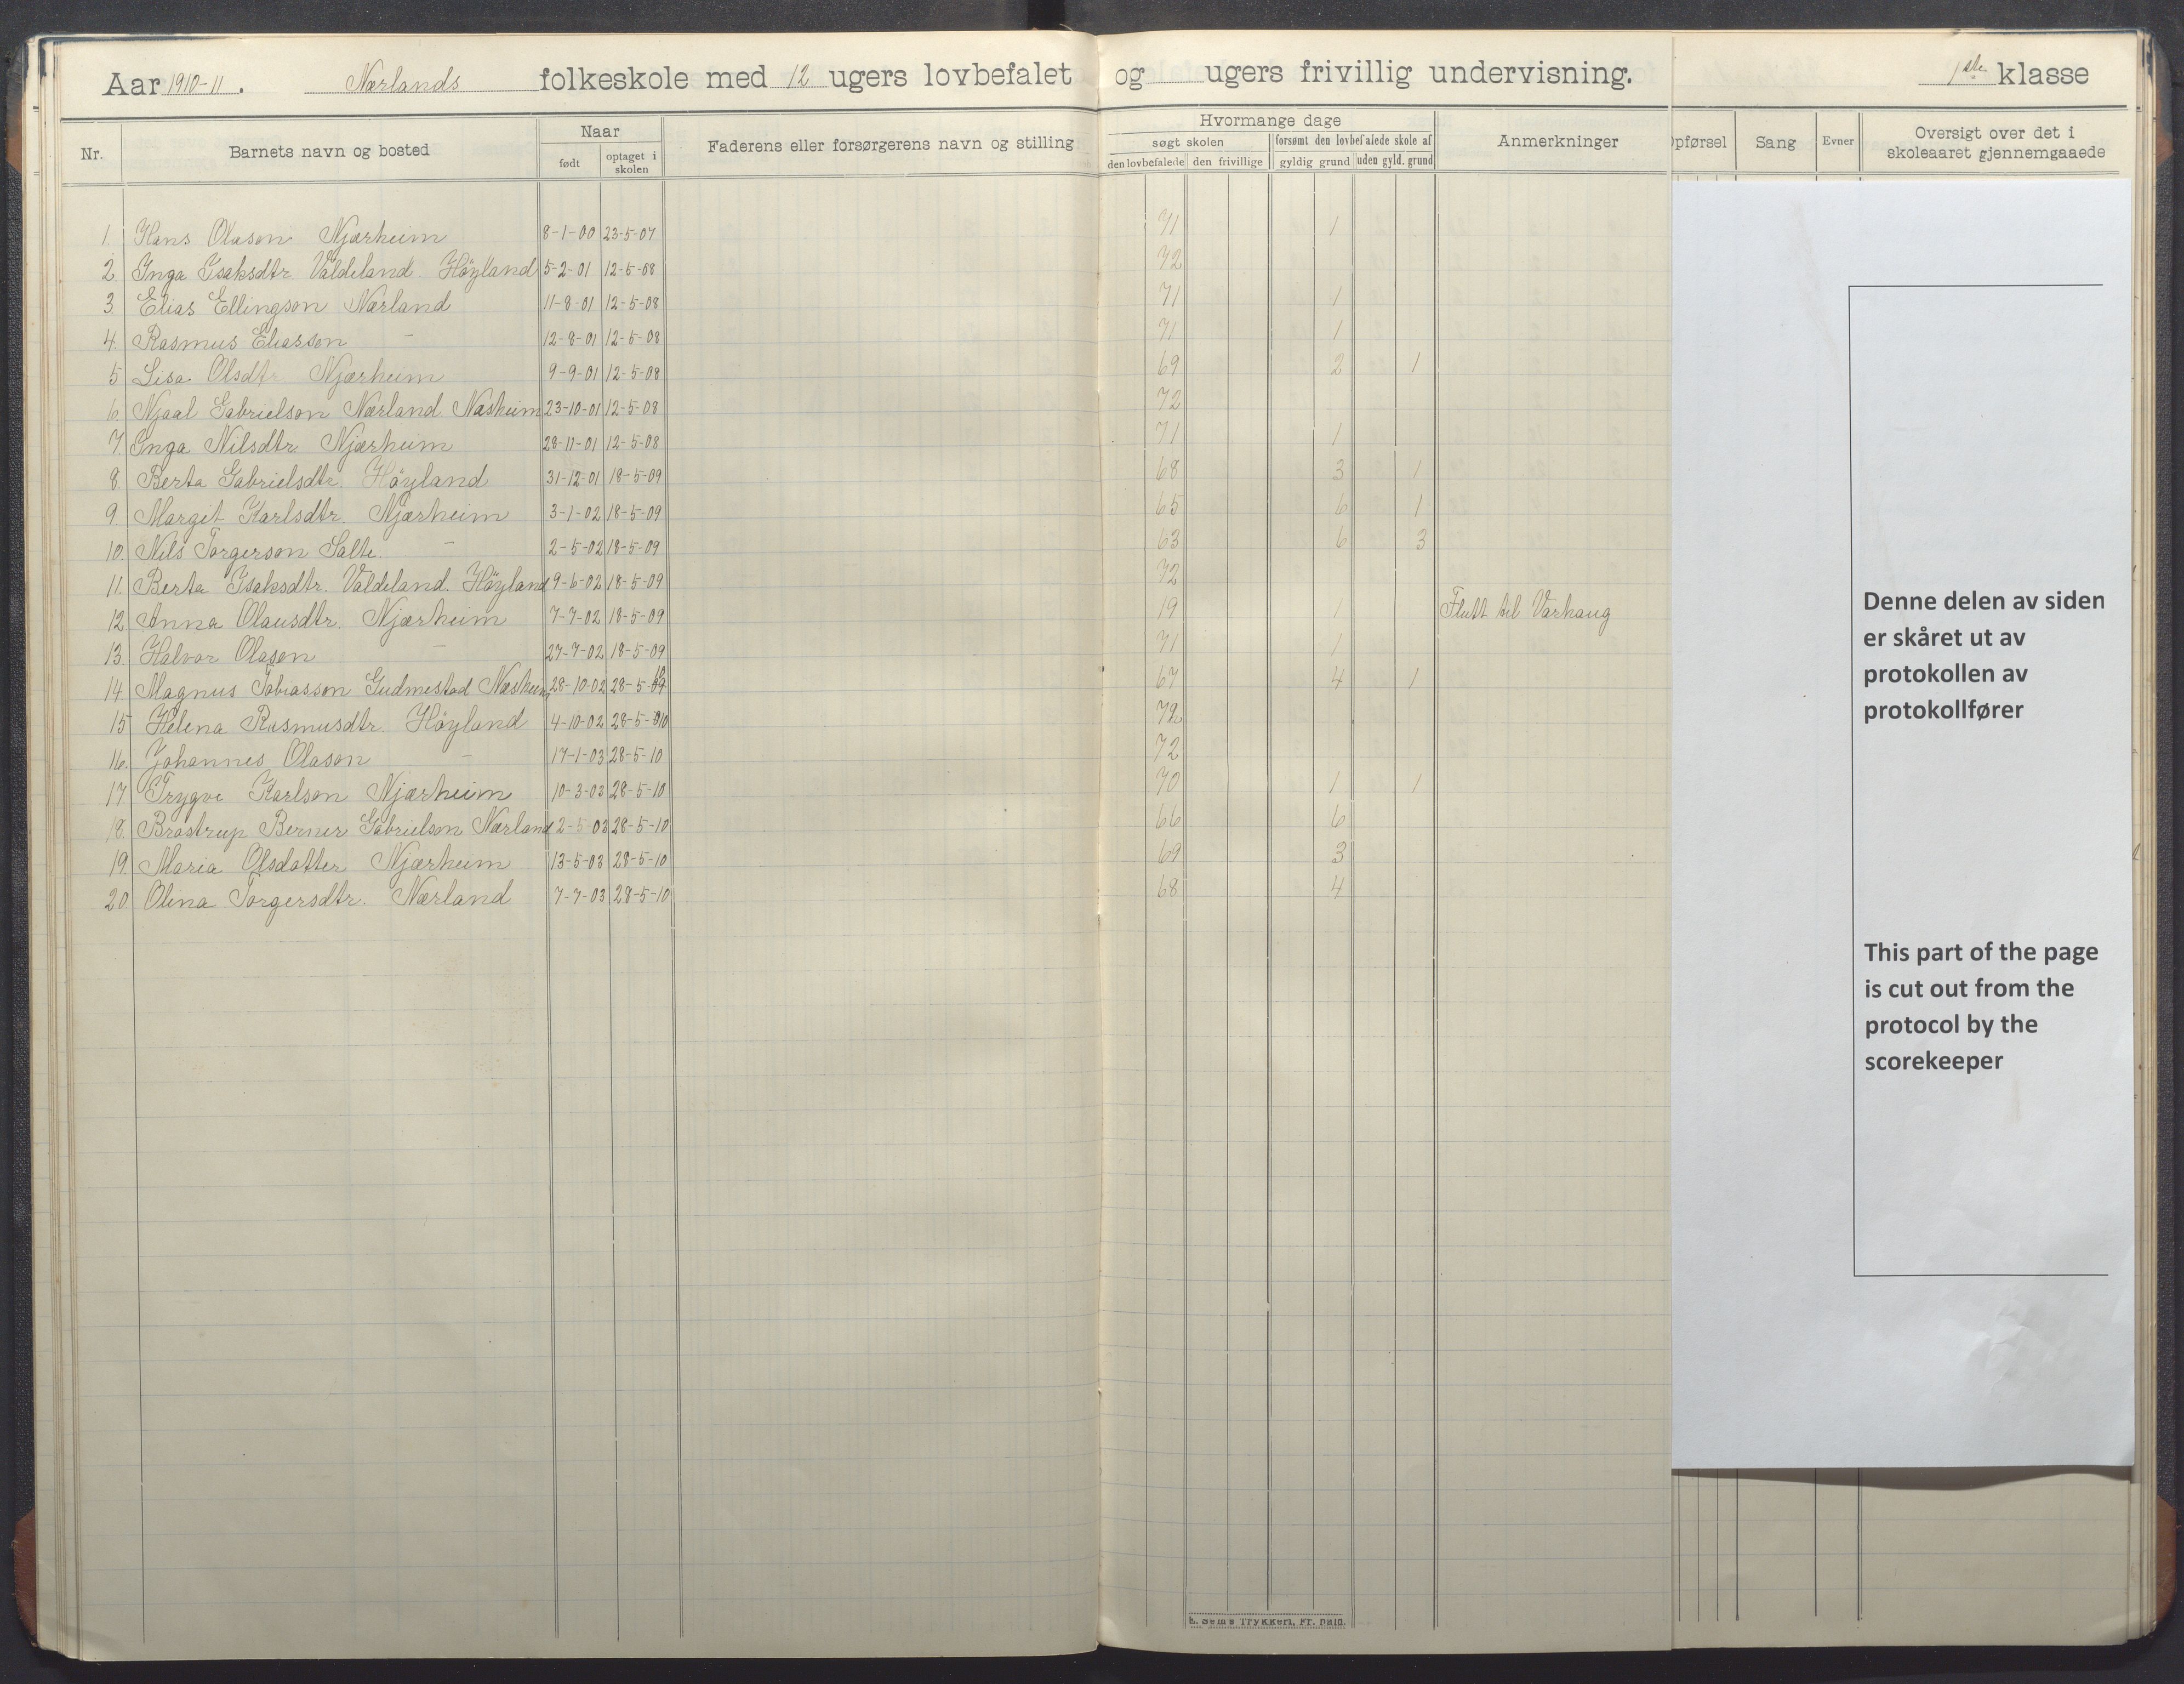 Aar 1910-11. Nærlands folkeskole med 12 ugers lovbefalet og ugers frivillig undervisning. 1ste klasse
Nr. Barnets navn og bosted Naar født optaget i skolen Faderens eller forsørgerens navn og stilling Hvormange dage søgt skolen den lovbefalede den frivillige forsømt den lovbefalede skole af gyldig grund uden gyld. grund Anmerkninger Opførsel Sang Evner Oversigt over det i skoleaaret gjennemgaaede
1. Hans Olason Njærheim 8-1-00 23-5-07 71 1
2. Inga Isaksdtr. Valdeland Höyland 5-2-01 12-5-08 72
3. Elias Ellingson Nærland 11-8-01 12-5-08 71 1
4. Rasmus Eliasson - 12-8-01 12-5-08 71 1
5 Lisa Olsdtr Njærheim 9-9-01 12-5-08 69 2 1
6 Njaal Gabrielson Nærland Næsheim 23-10-01 12-5-08 72
7. Inga Nilsdtr. Njærheim 28-11-01 12-5-08 71 1
8. Berta Gabrielsdtr. Höyland 31-12-01 18-5-09 68 3 1
9. Margit Karlsdtr. Njærheim 3-1-02 18-5-09 65 6 1
10. Nils Torgerson Salte. - 2-5-02 18-5-09 63 6 3
11. Berta Isaksdtr. Valdeland. Höyland 9-6-02 18-5-09 72
12. Anna Olausdtr. Njærheim 7-7-02 18-5-09 19 1 Flutt til Varhaug
13. Halvor Olason - 27-7-02 18-5-09 71 1
14. Magnus Tobiasson Gudmestad Næsheim 28-10-02 28-5-10 67 4 1
15 Helena Rasmusdtr. Höyland 4-10-02 28-5-10 72
16. Johannes Olason - 17-1-03 28-5-10 72
17 Trygve Karlson Njærheim 10-3-03 28-5-10 70 1 1
18. Brostrup Berner Gabrielson Nærland 2-5-03 28-5-10 66 6
19 Maria Olsdatter Njærheim 13-5-03 28-5-10 69 3
20. Olina Torgersdtr. Nærland 7-7-03 28-5-10 68 4
Denne delen av siden
er skåret ut av
protokollen av
protokollfører
This part of the page
is cut out from the
protocol by the
scorekeeper